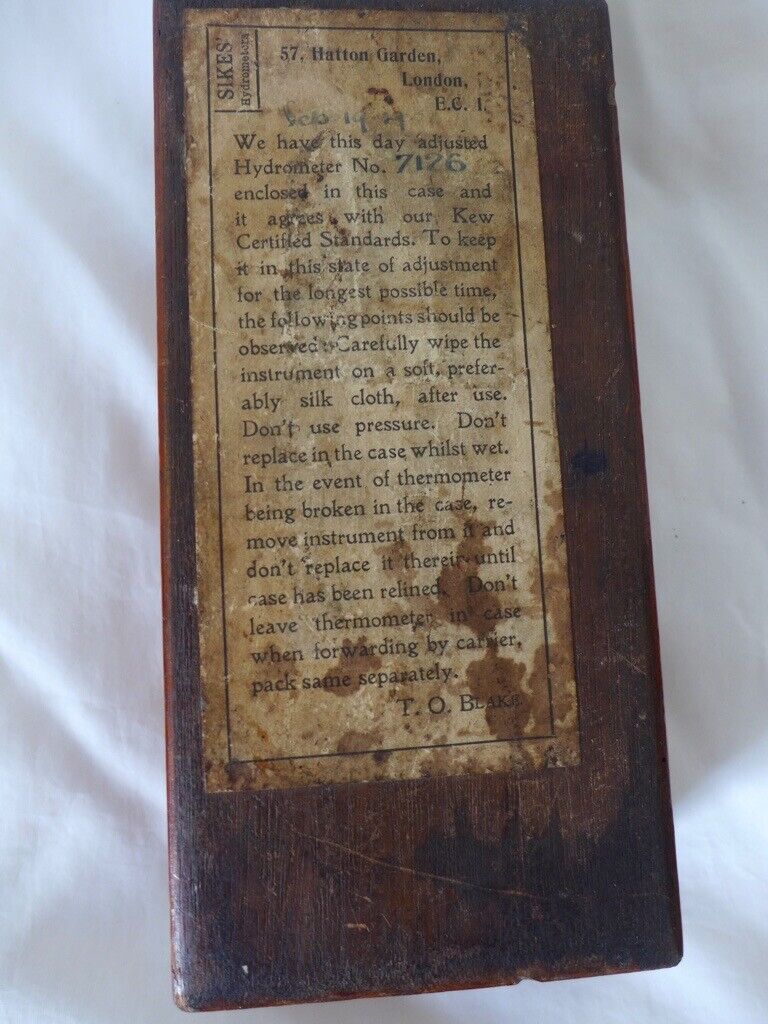 SIKES'
Hydrometers
57, Hatton Garden,
London,
E.C. 1.
We have this day adjusted
Hydrometer No. 7126
enclosed in this case and
it agrees with our Kew
Certified Standards. To keep
it in this state of adjustment
for the longest possible time,
the following points should be
observed: Carefully wipe the
instrument on a soft, prefer-
ably silk cloth, after use.
Don't use pressure. Don't
replace in the case whilst wet.
In the event of thermometer
being broken in the case, re-
move instrument from it and
don't replace it therein until
case has been relined. Don't
leave thermometer in case
when forwarding by carrier,
pack same separately.
T. O. BLAKE